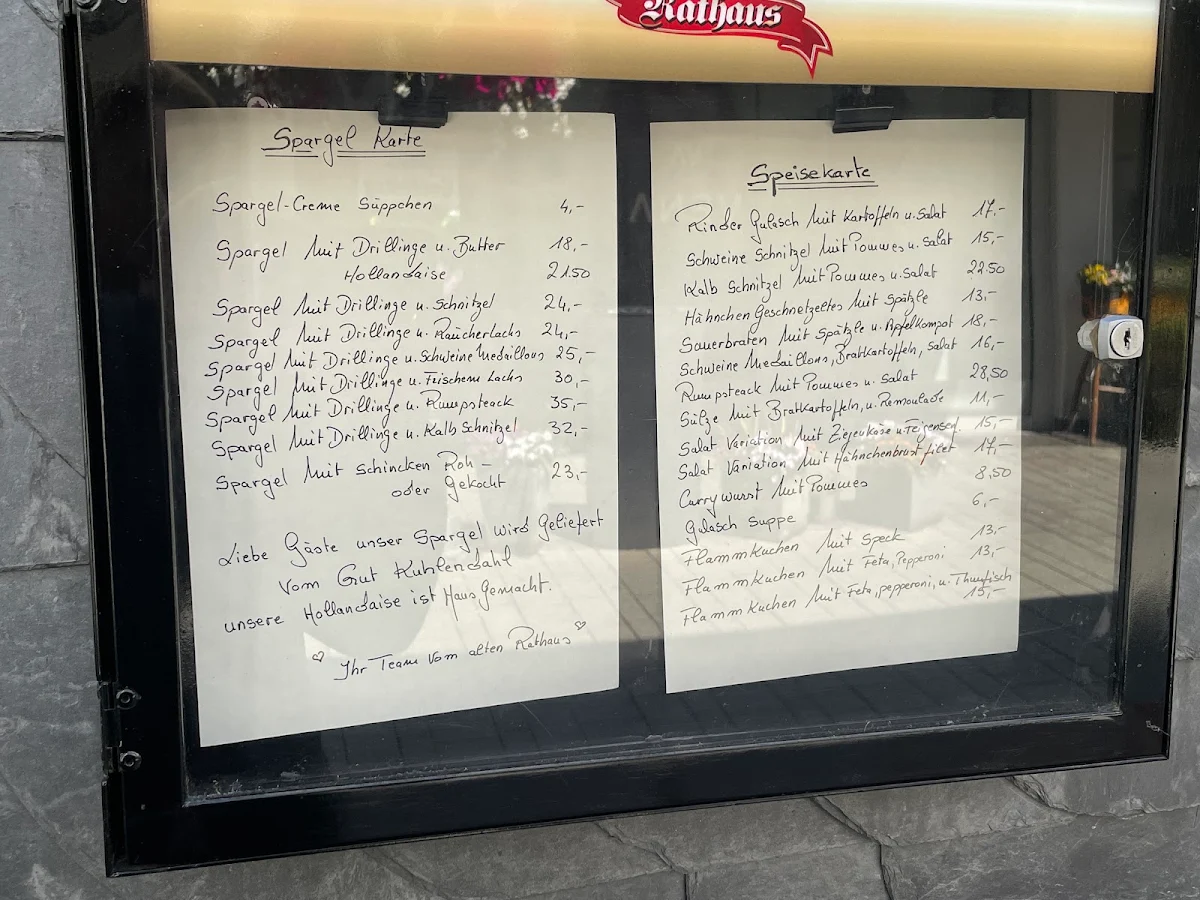 Rathaus
Spargel Karte
Spargel-Creme Süppchen 4,-
Spargel Mit Drillinge u. Butter 18,-
Hollandaise 21.50
Spargel Mit Drillinge u. Schnitzel 24,-
Spargel Mit Drillinge u. Räucherlachs 24,-
Spargel Mit Drillinge u. Schweine Medaillons 25,-
Spargel Mit Drillinge u. Frischem Lachs 30,-
Spargel Mit Drillinge u. Rumpsteack 35,-
Spargel Mit Drillinge u. Kalb Schnitzel 32,-
Spargel Mit Schincken Roh -
oder Gekocht 23,-
Liebe Gäste unser Spargel wird Geliefert
Vom Gut Kuhlendahl
unsere Hollandaise ist Haus Gemacht.
Ihr Team vom alten Rathaus
Speisekarte
Rinder Gulasch Mit Kartoffeln u. Salat 17.-
Schweine Schnitzel Mit Pommes u. Salat 15,-
Kalb Schnitzel Mit Pommes u. Salat 22.50
Hähnchen Geschnetzeltes Mit Spätzle 13,-
Sauerbraten Mit Spätzle u. Apfelkompot 18,-
Schweine Medaillons, Bratkartoffeln, Salat 16,-
Rumpsteack Mit Pommes u. Salat 28,50
Sülze Mit Bratkartoffeln, u. Remoulade 11,-
Salat Variation Mit Ziegenkäse u. Feigensenf. 15,-
Salat Variation Mit Hähnchenbrust filet 17,-
Currywurst Mit Pommes 8,50
Gulasch Suppe 6,-
Flammkuchen Mit Speck 13,-
Flammkuchen Mit Feta, Pepperoni 13,-
Flammkuchen Mit Feta, pepperoni, u. Thunfisch
15,-